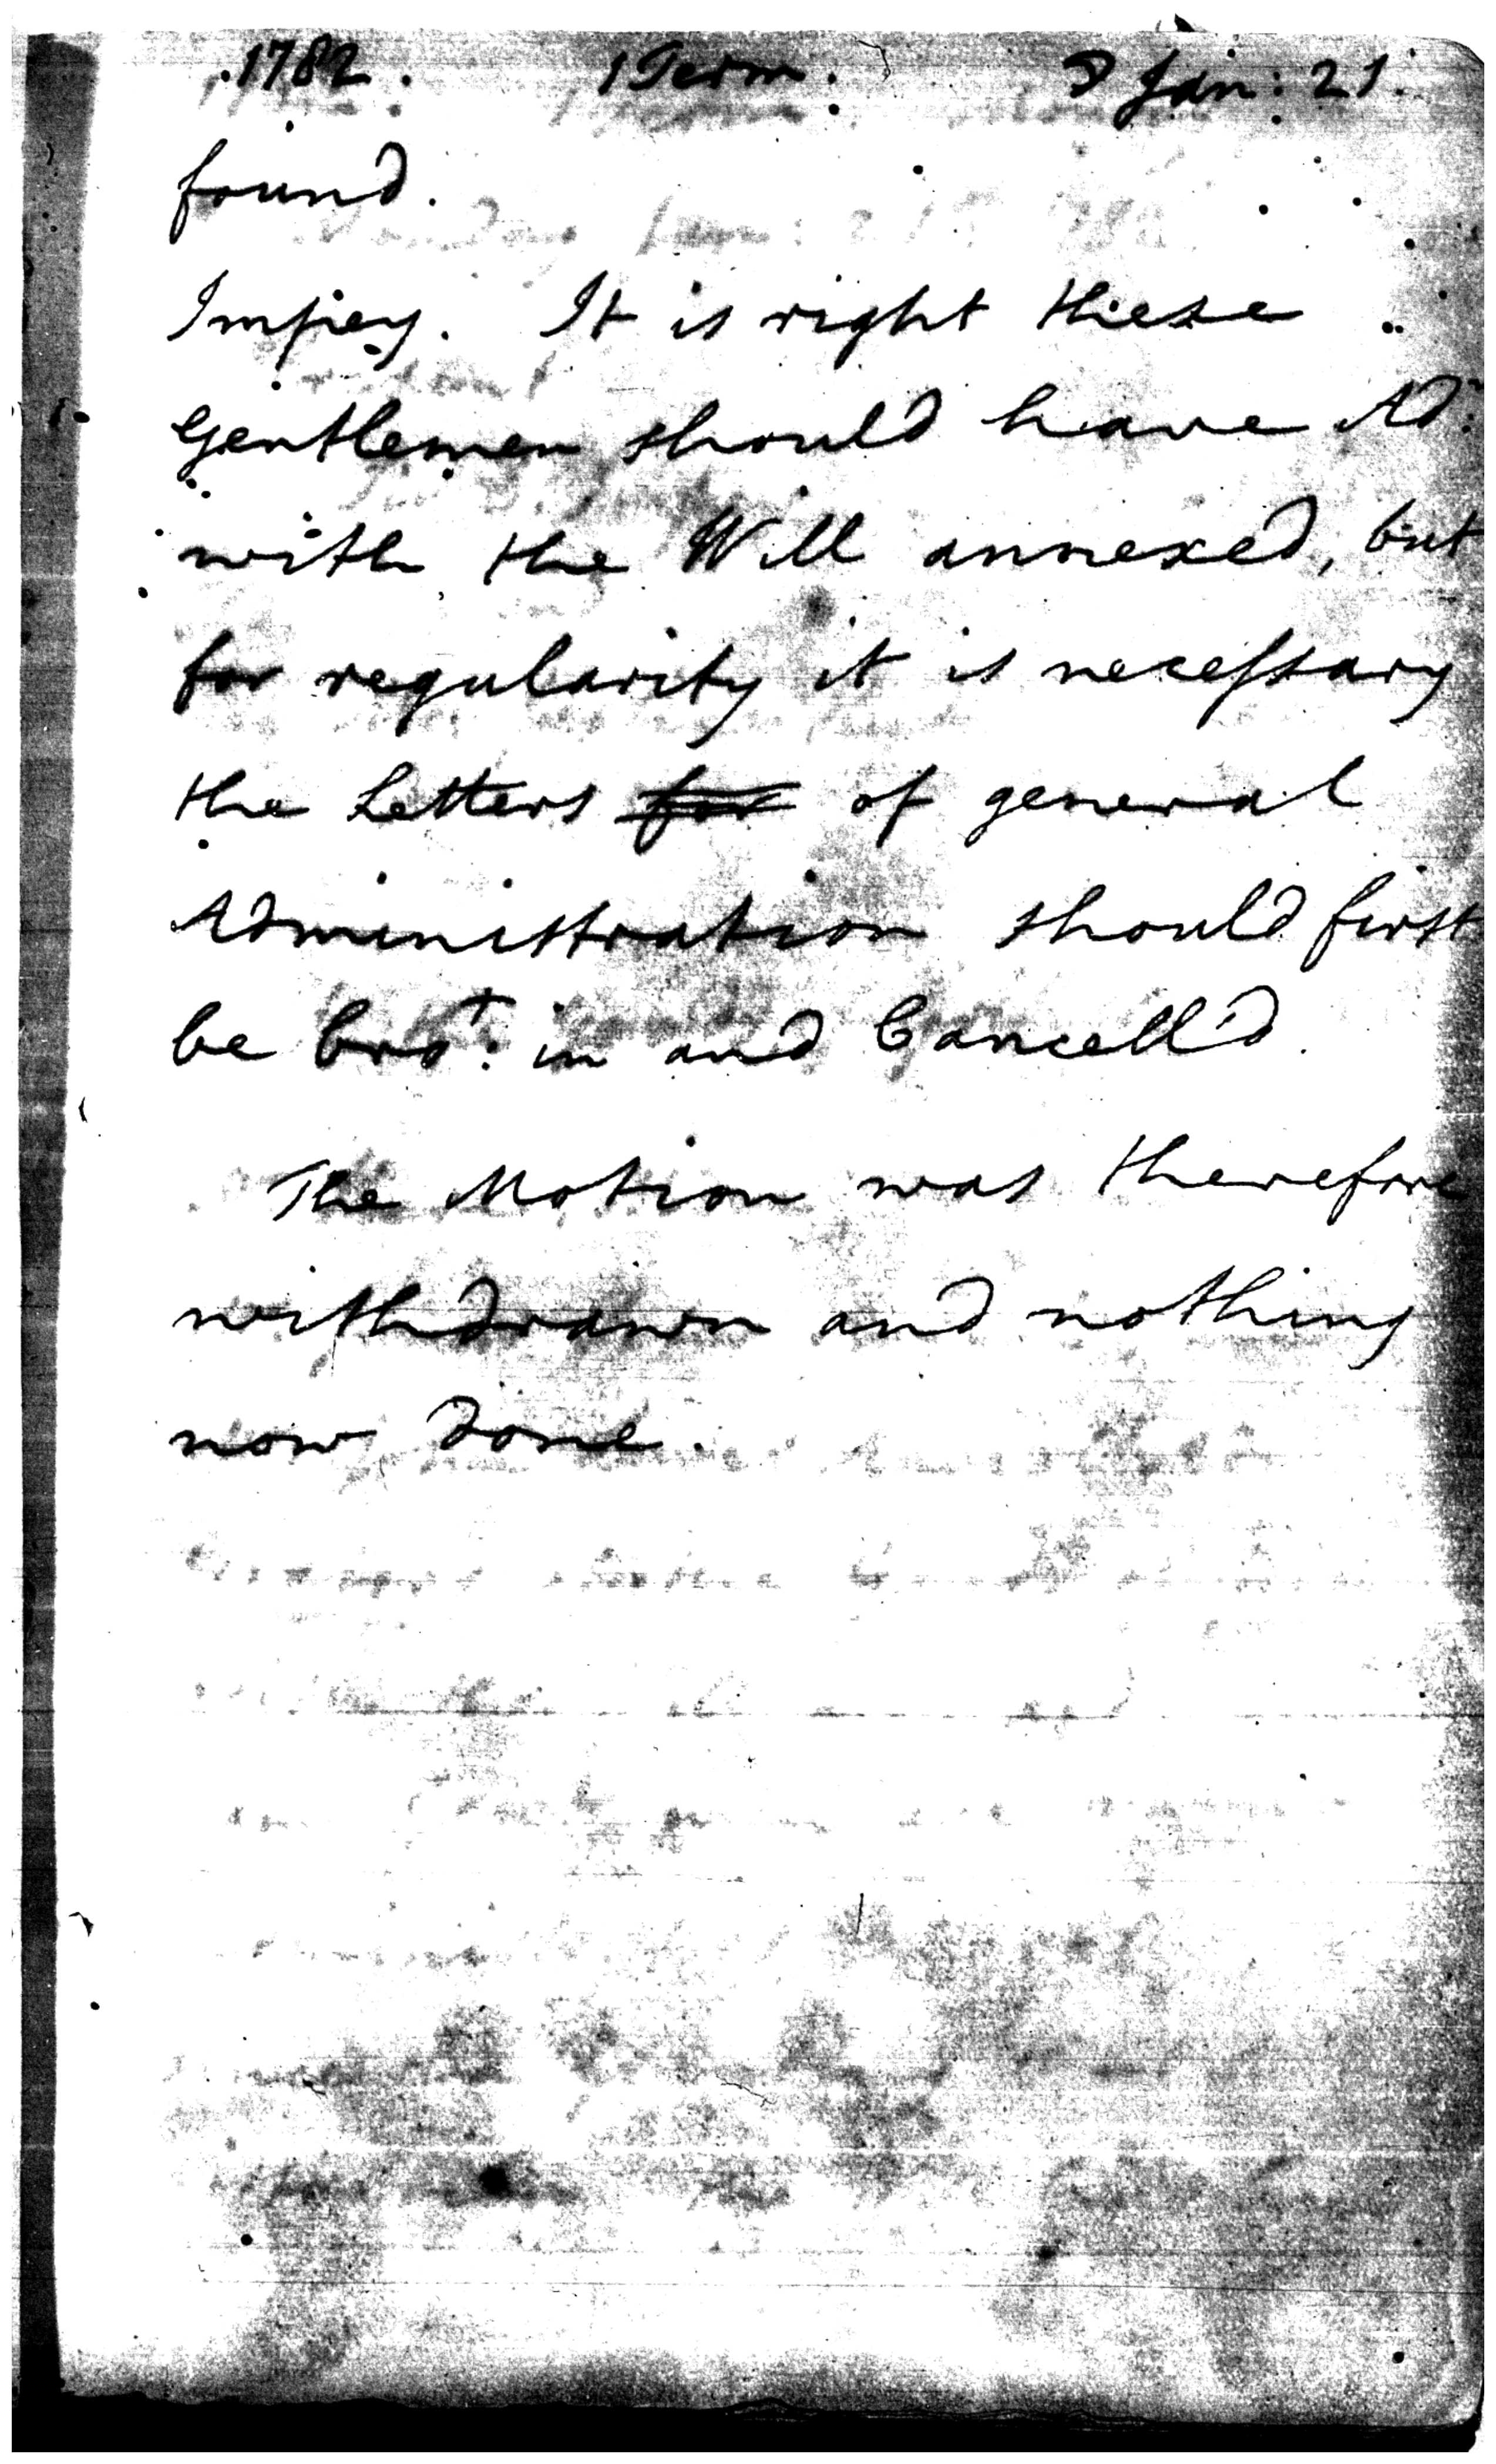 1782. 1 Term. Jan: 21.
found.
Impey. It is right these
Gentlemen should have Ad:
with the Will annexed, but
for regularity it is necessary
the Letters for of general
Administration should first
be bro.t in and Cancell'd.
The Motion was therefore
withdrawn and nothing
now done.